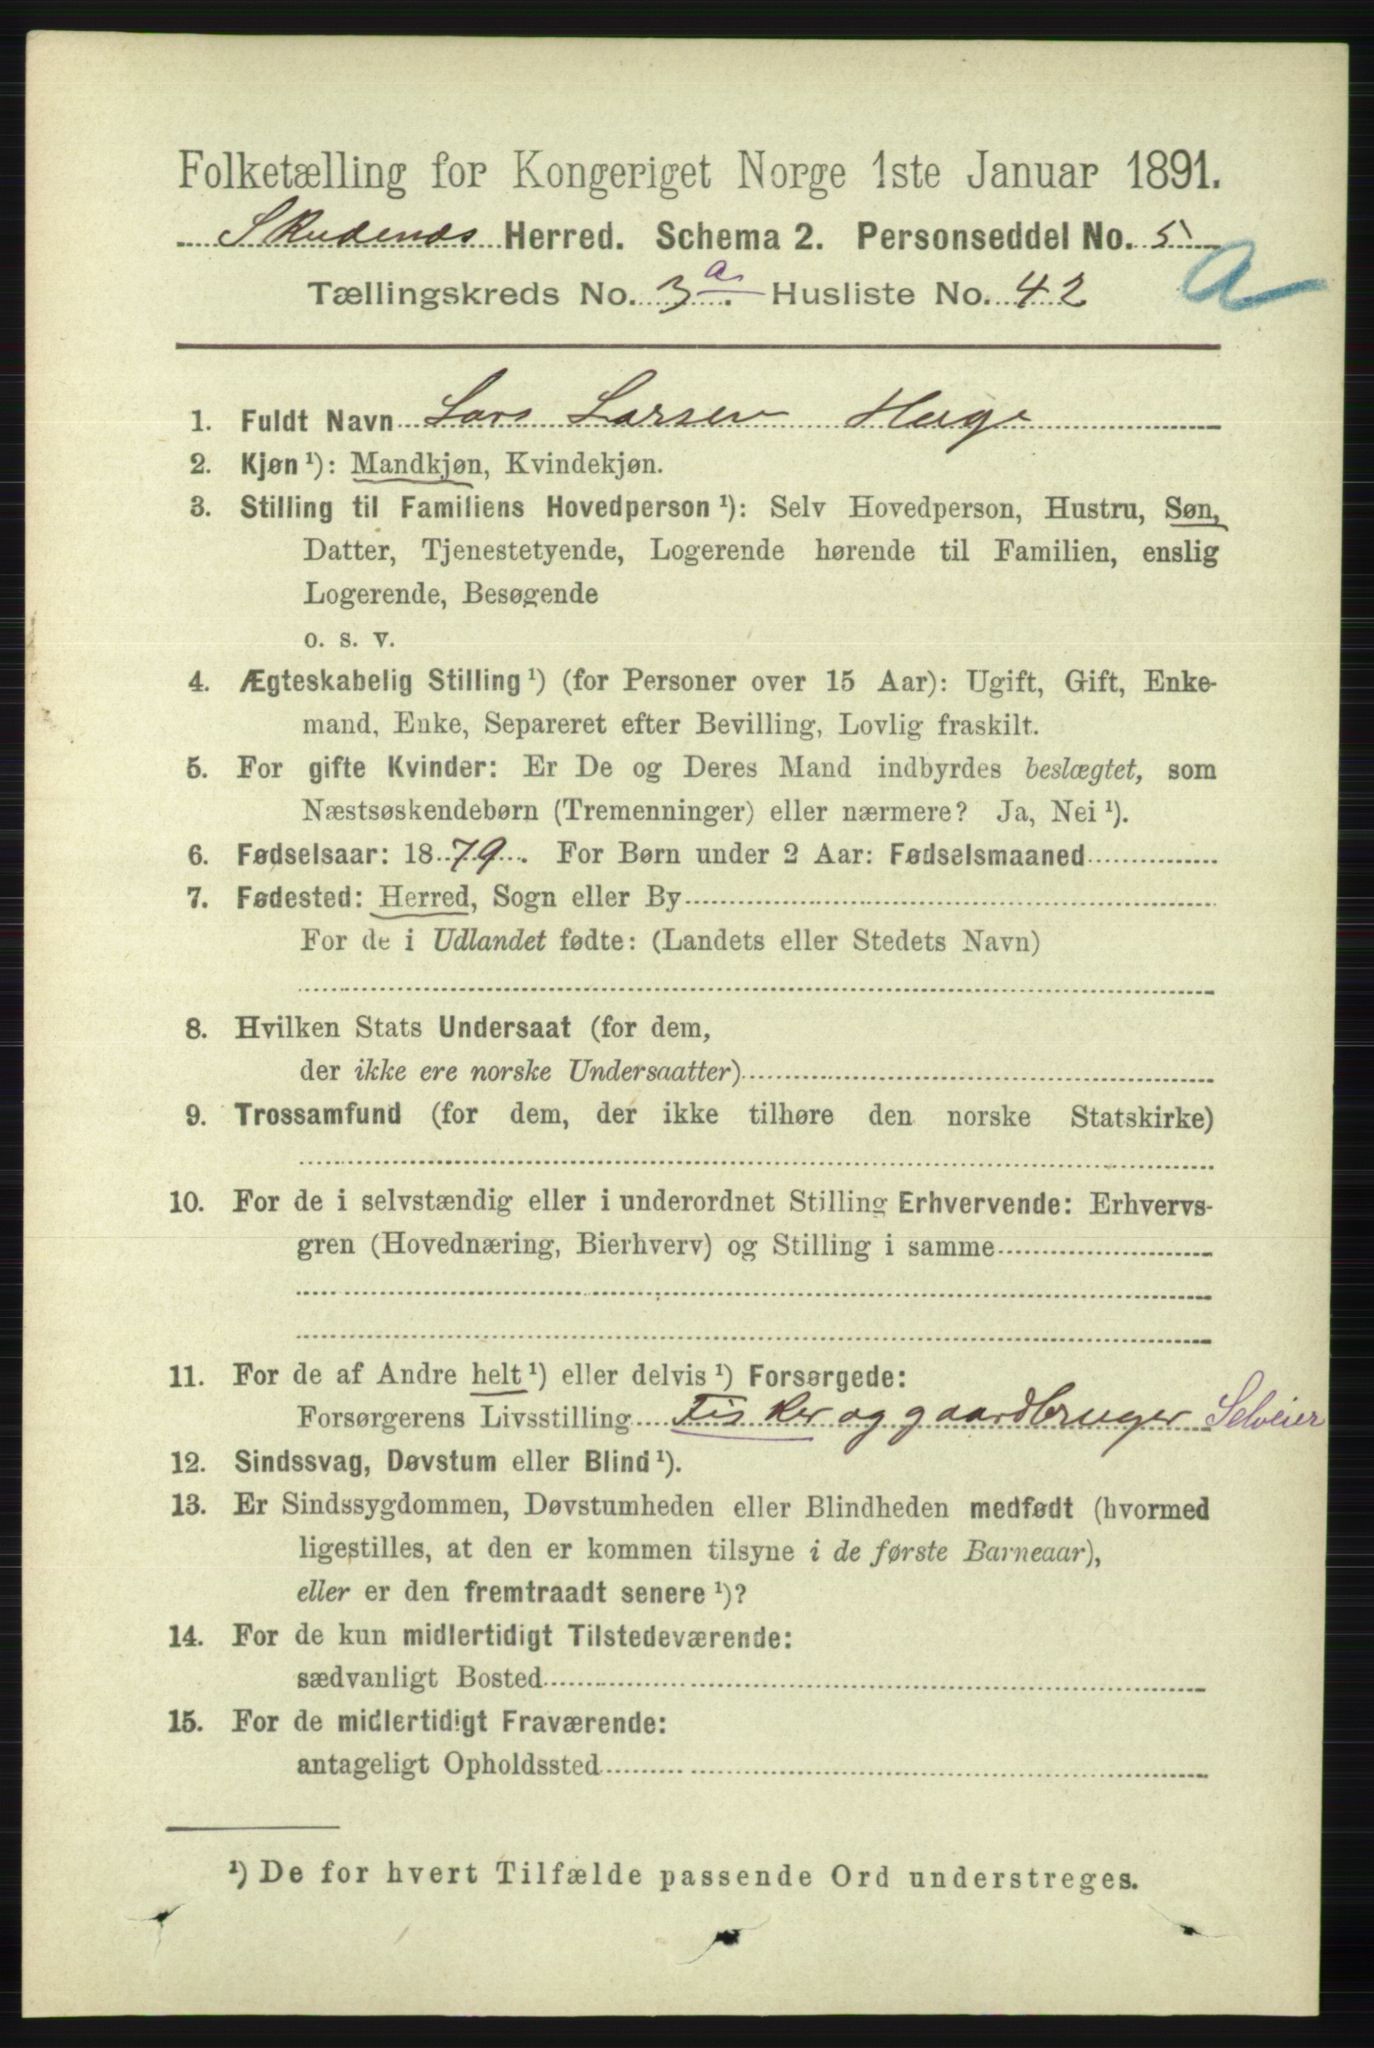 Folketælling for Kongeriget Norge 1ste Januar 1891.
Skudenes Herred. Schema 2. Personseddel No. 5
A
Tællingskreds No. 3a. Husliste No. 42
1. Fuldt Navn Lars Larsen Hage
2. Kjøn ¹): Mandkjøn, Kvindekjøn.
3. Stilling til Familiens Hovedperson ¹): Selv Hovedperson, Hustru, Søn,
Datter, Tjenestetyende, Logerende hørende til Familien, enslig
Logerende, Besøgende
o. s. v.
4. Ægteskabelig Stilling ¹) (for Personer over 15 Aar): Ugift, Gift, Enke-
mand, Enke, Separeret efter Bevilling, Lovlig fraskilt.
5. For gifte Kvinder: Er De og Deres Mand indbyrdes beslægtet, som
Næstsøskendebørn (Tremenninger) eller nærmere? Ja, Nei ¹).
6. Fødselsaar: 1879. For Børn under 2 Aar: Fødselsmaaned
7. Fødested: Herred, Sogn eller By
For de i Udlandet fødte: (Landets eller Stedets Navn)
8. Hvilken Stats Undersaat (for dem,
der ikke ere norske Undersaatter)
9. Trossamfund (for dem, der ikke tilhøre den norske Statskirke)
10. For de i selvstændig eller i underordnet Stilling Erhvervende: Erhvervs-
gren (Hovednæring, Bierhverv) og Stilling i samme
11. For de af Andre helt ¹) eller delvis ¹) Forsørgede:
Forsørgerens Livsstilling Fisker og gaardbruger Selveier
12. Sindssvag, Døvstum eller Blind ¹).
13. Er Sindssygdommen, Døvstumheden eller Blindheden medfødt (hvormed
ligestilles, at den er kommen tilsyne i de første Barneaar),
eller er den fremtraadt senere ¹)?
14. For de kun midlertidigt Tilstedeværende:
sædvanligt Bosted
15. For de midlertidigt Fraværende:
antageligt Opholdssted
¹) De for hvert Tilfælde passende Ord understreges.